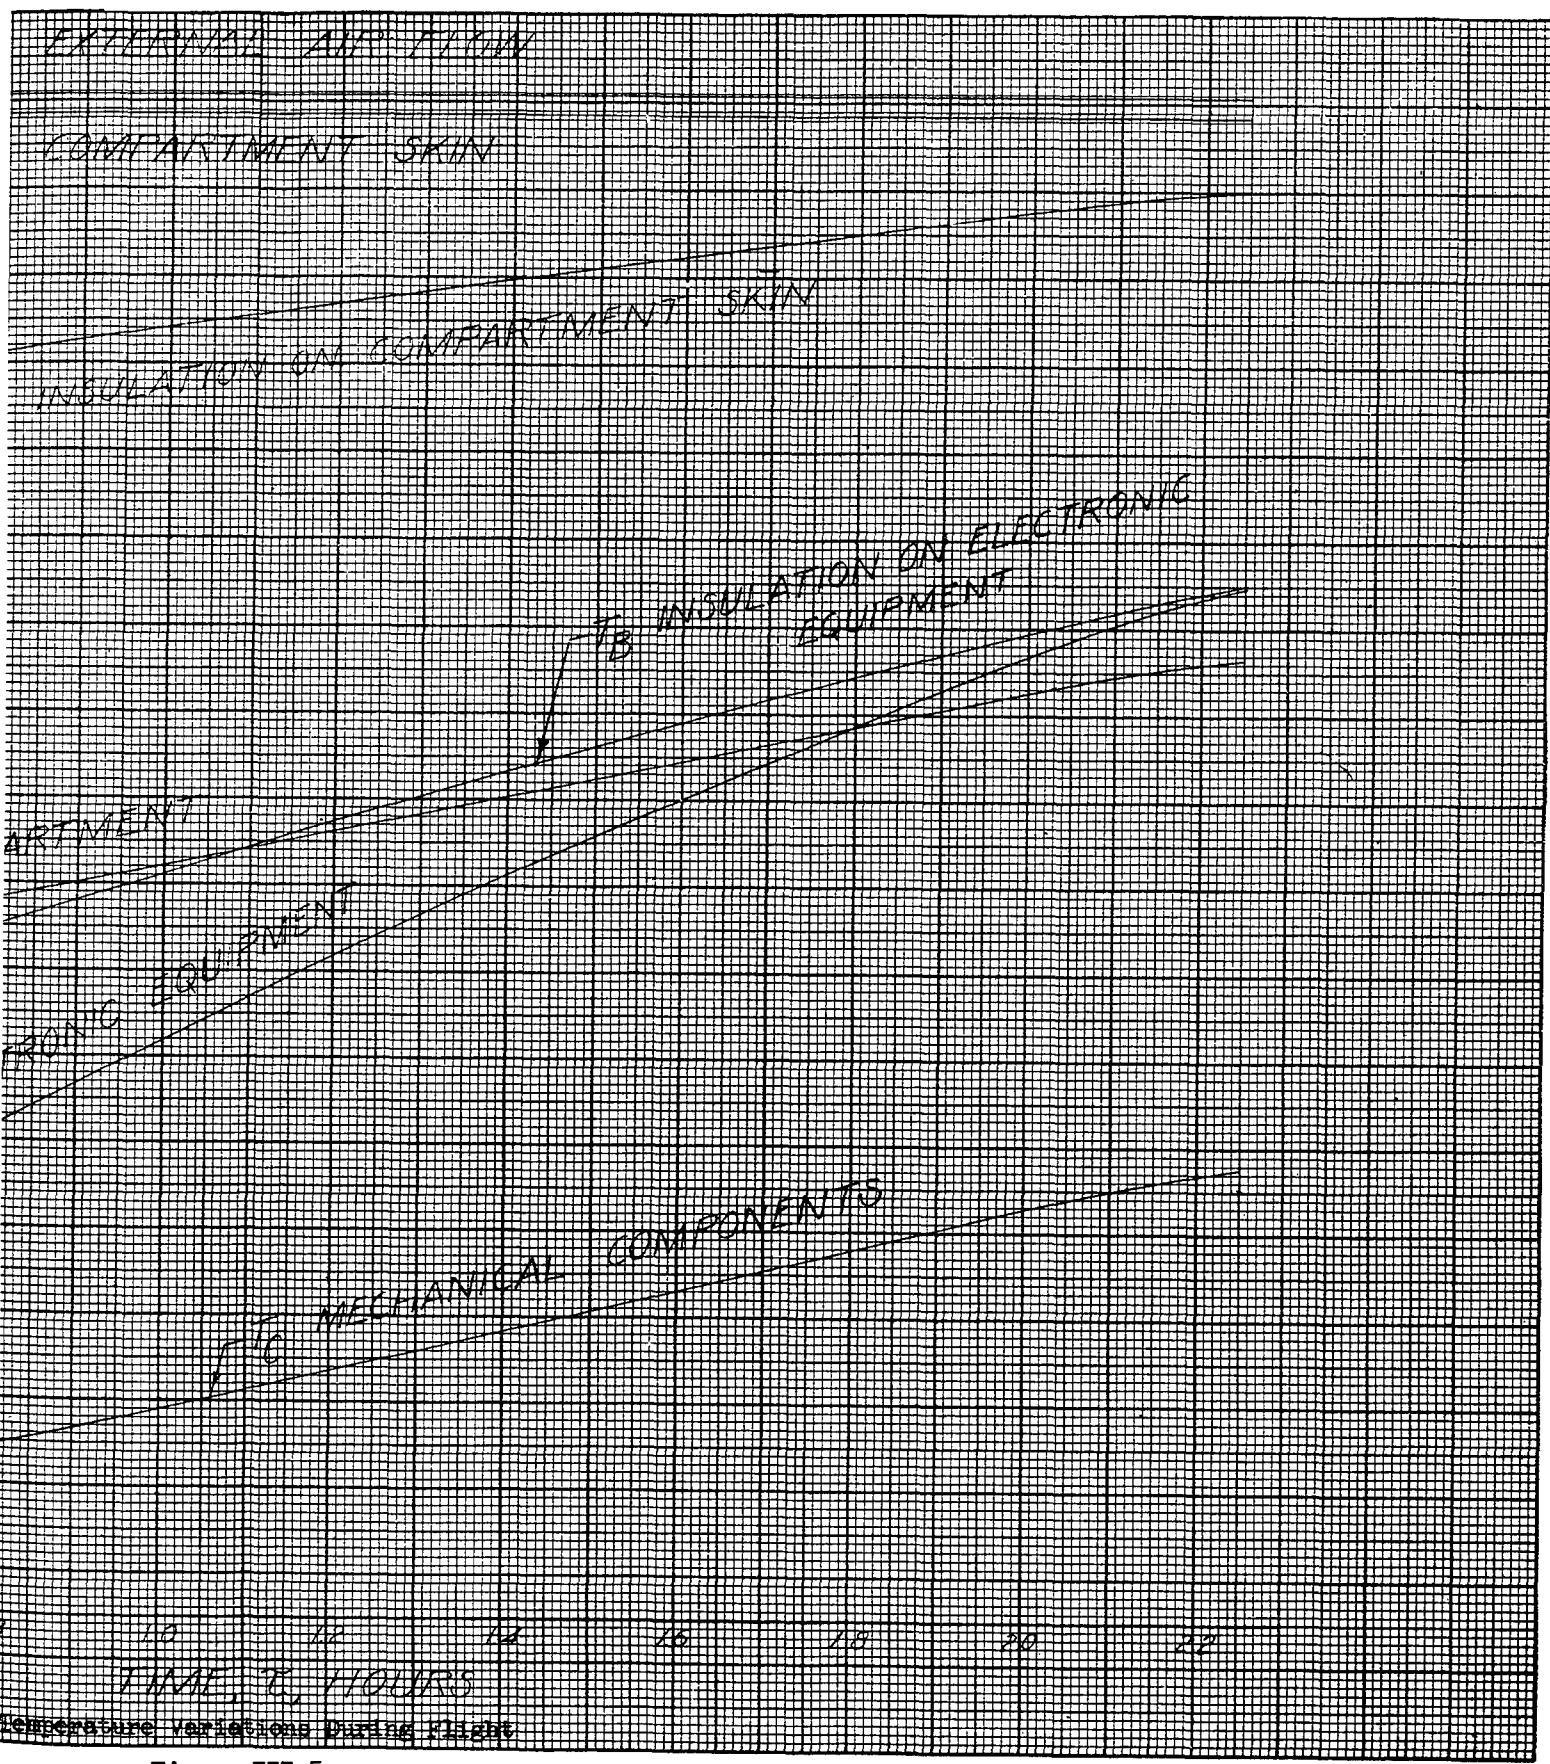 EXTERNAL AIR FLOW
COMPARTMENT SKIN
INSULATION ON COMPARTMENT SKIN
T_B INSULATION ON ELECTRONIC
EQUIPMENT
ARTMENT
TRONIC EQUIPMENT
T_C MECHANICAL COMPONENTS
1.0 1.2 1.4 1.6 1.8 2.0 2.2
TIME, τ, HOURS
Temperature Variations During Flight